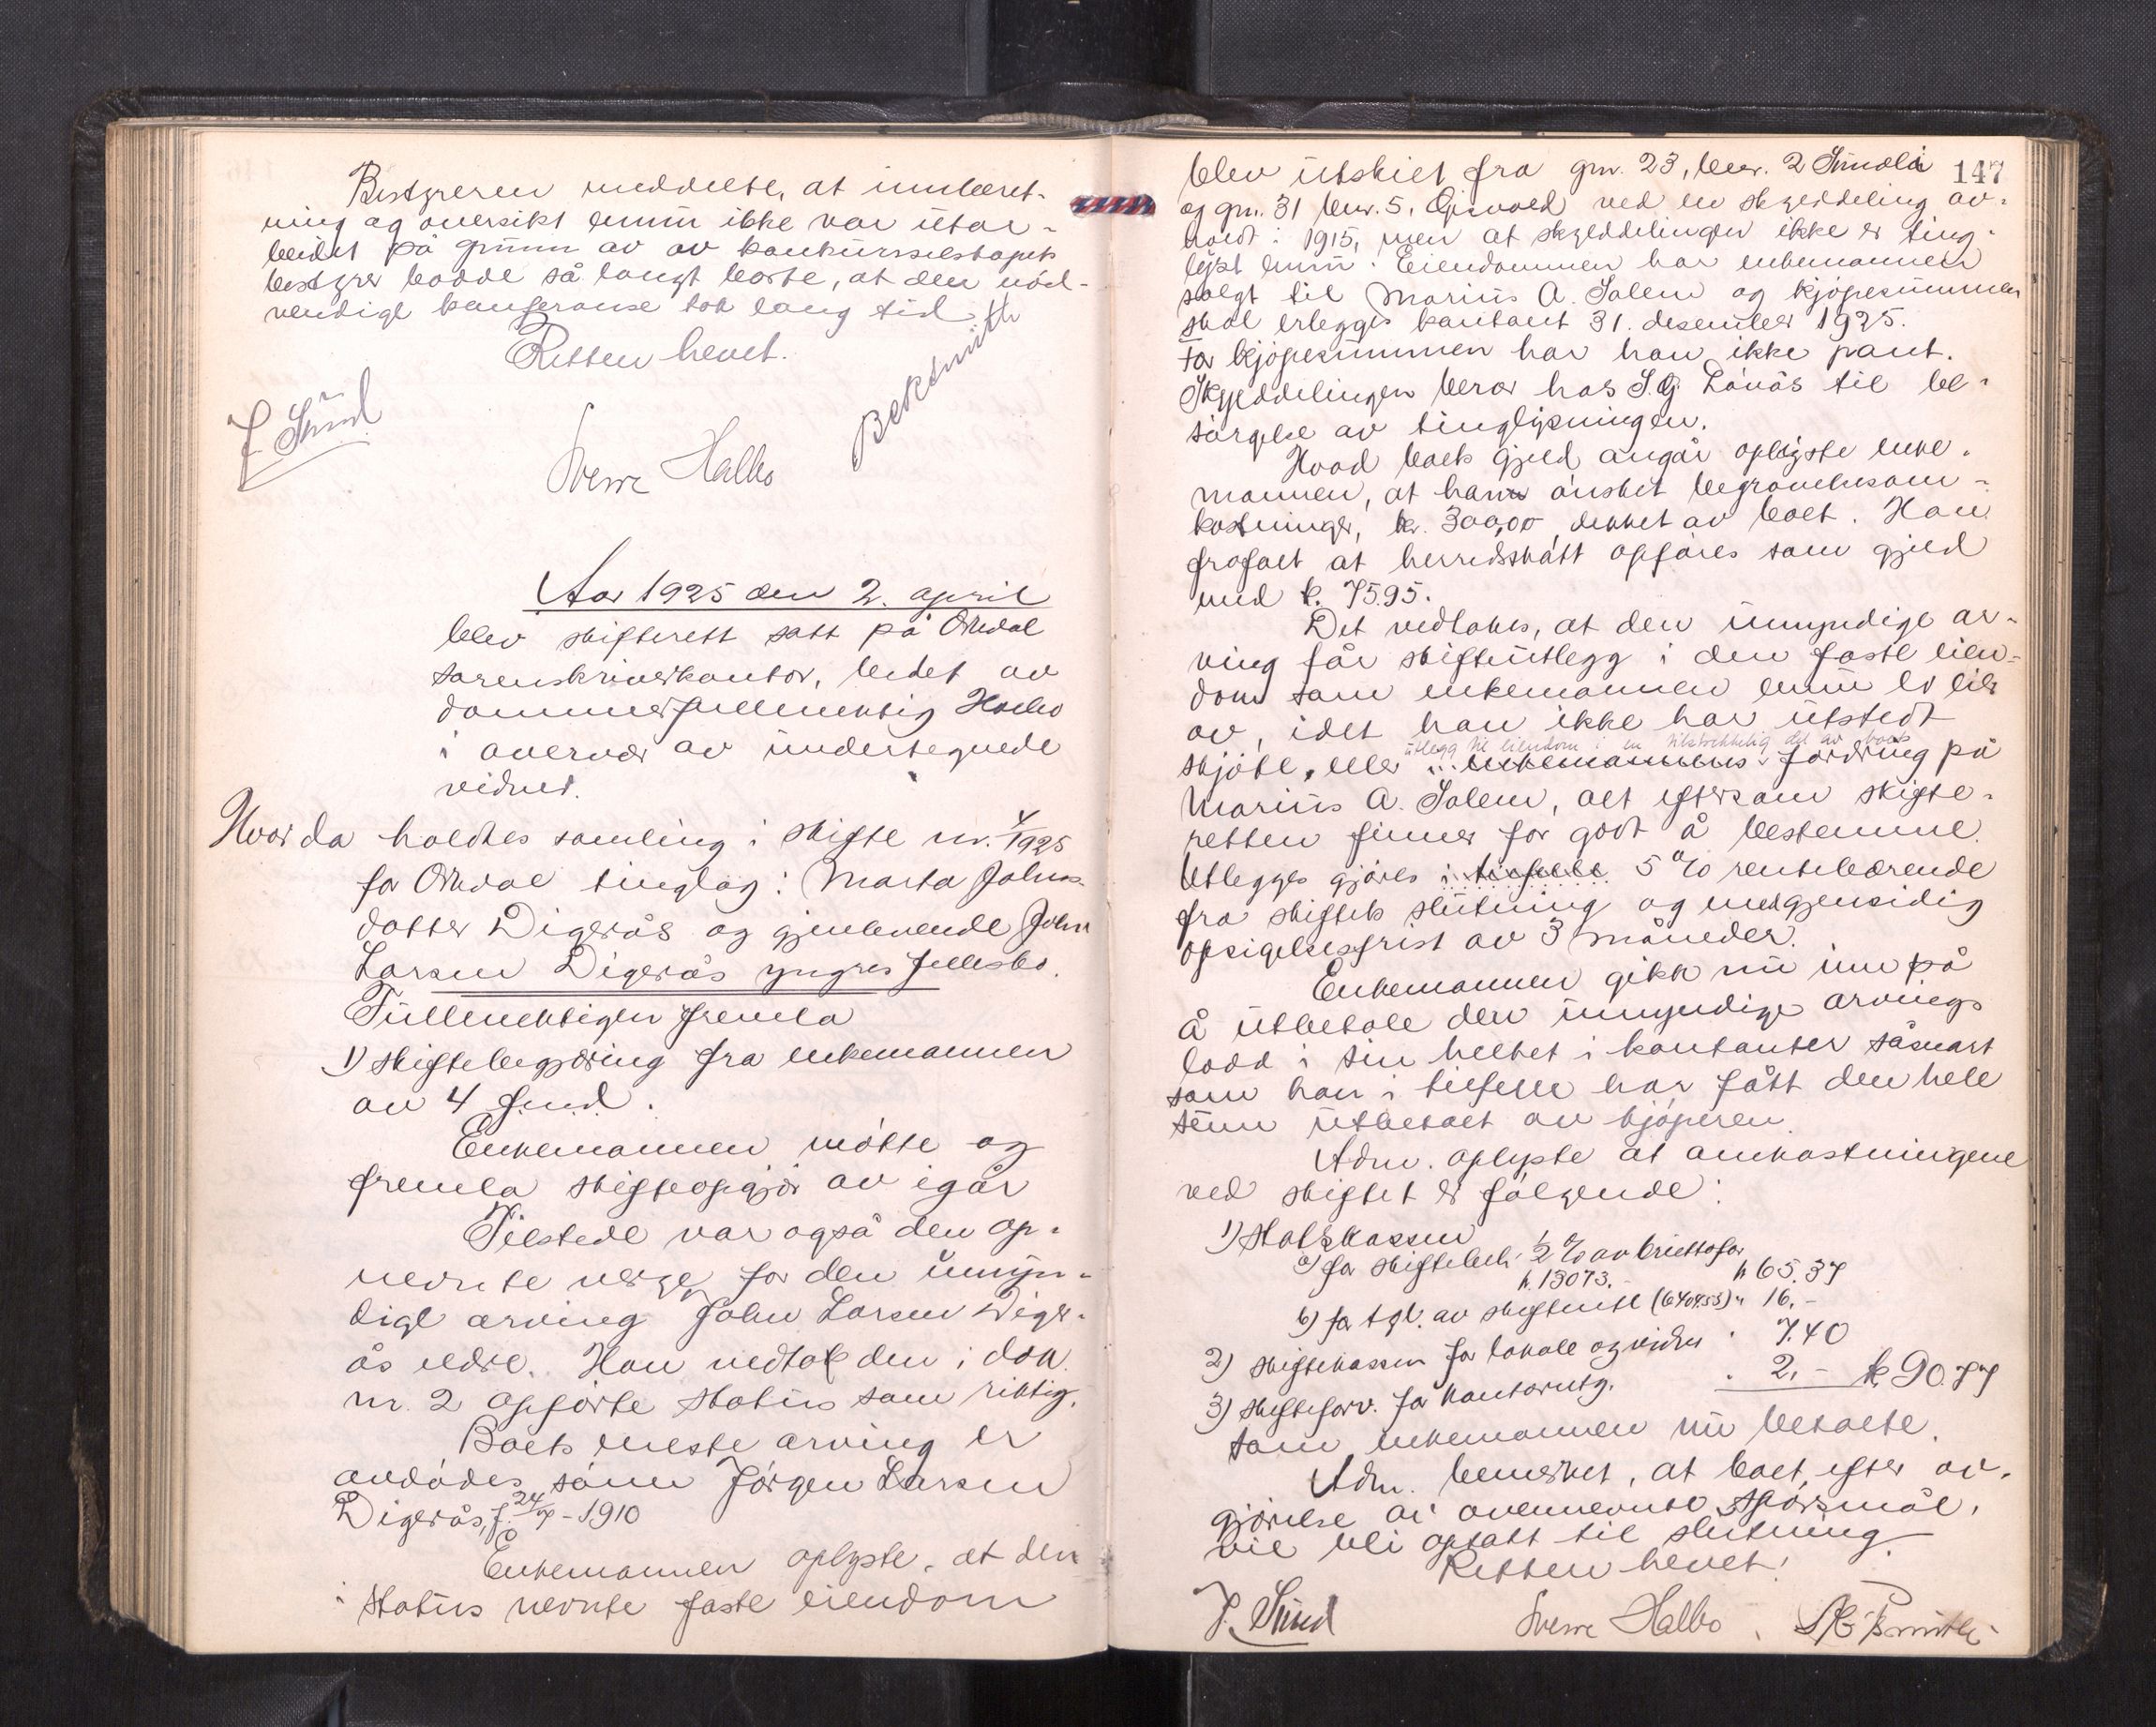 Bestyreren meddelte, at innberet-
ning og oversikt ennu ikke var utar-
beidet på grunn av av konkursselskapets
bestyrer bodde så langt borte, at den nød-
vendige konferanse tok lang tid.
Retten hevet.
J. Sund
Sverre Halbo
Aar 1925 den 2. april
blev skifterett satt på Orkdal
sorenskriverkontor, ledet av
dommerfullmektig Halbo
i overvær av undertegnede
vidner.
Hvor da holdtes samling i skifte nr. 4/1925
for Orkdal tinglag: Marta Johns-
datter Digerås og gjenlevende John
Larsen Digerås yngres fellesbo.
Fullmektigen fremla
1) skiftebegjæring fra enkemannen
av 4 f.md.
Enkemannen møtte og
fremla skifteopgjør av igår
Tilstede var også den op-
nevnte verge for den umyn-
dige arving John Larsen Diger-
ås eldre. Han vedtok den i dok.
nr. 2 opførte status som riktig.
Boets eneste arving er
avdødes sønn Jörgen Larsen
Digerås, f. 24/7 - 1910
Enkemannen oplyste, at den
i status nevnte faste eiendom
147
blev utskiet fra gnr. 23, bnr. 2 Sundli
og gnr. 31 bnr. 5, Gjeivold ved en skylddeling av-
holdt i 1915, men at skylddelingen ikke er ting-
lyst ennu. Eiendommen har enkemannen
solgt til Marius A. Solem og kjøpesummen
skal erlegges kontant 31. desember 1925.
For kjøpesummen har han ikke pant.
Skylddelingen beror hos S. G. Lånås til be-
sørgelse av tinglysningen.
Hvad boets gjeld angår oplyste enke-
mannen, at han ønsket begravelsesom-
kostninger, kr. 300,00 dekket av boet. Han
frafalt at herredsskatt opføres som gjeld
med k. 75.95.
Det vedtokes, at den umyndige ar-
ving får skifteutlegg i den faste eien-
dom som enkemannen ennu er eier
av, idet han ikke har utstedt
utlegg til eiendom i en tilstrekkelig del av boets
skjøte, eller i enkemannens fordring på
Marius A. Solem, alt eftersom skifte-
retten finner for godt å bestemme.
Utlegges gjøres i tilfelle 5% rentebærende
fra skiftets slutning og med gjensidig
opsigelsesfrist av 3 måneder.
Enkemannen gikk nu inn på
å utbetale den umyndige arvings
lodd i sin helhet i kontanter såsnart
som han i tilfelle har fått den hele
sum utbetalt av kjøperen.
Adm. oplyste at omkostningene
ved skiftet er følgende:
1) Statskassen
a) for skiftebeh. 1/2 % av bruttofor
k. 13073.- k 65.37
b) for tgl. av skifteutl (6404.53) " 16.-
2) skiftekassen for lokale og vidner " 7.40
3) skifteforv. for kontorutg. " 2.- k 90.77
som enkemannen nu betalte.
Adm. bemerket, at boet, efter av-
gjørelse av ovennevnte spørsmål,
vil bli optatt til slutning.
Retten hevet.
J. Sund
Sverre Halbo